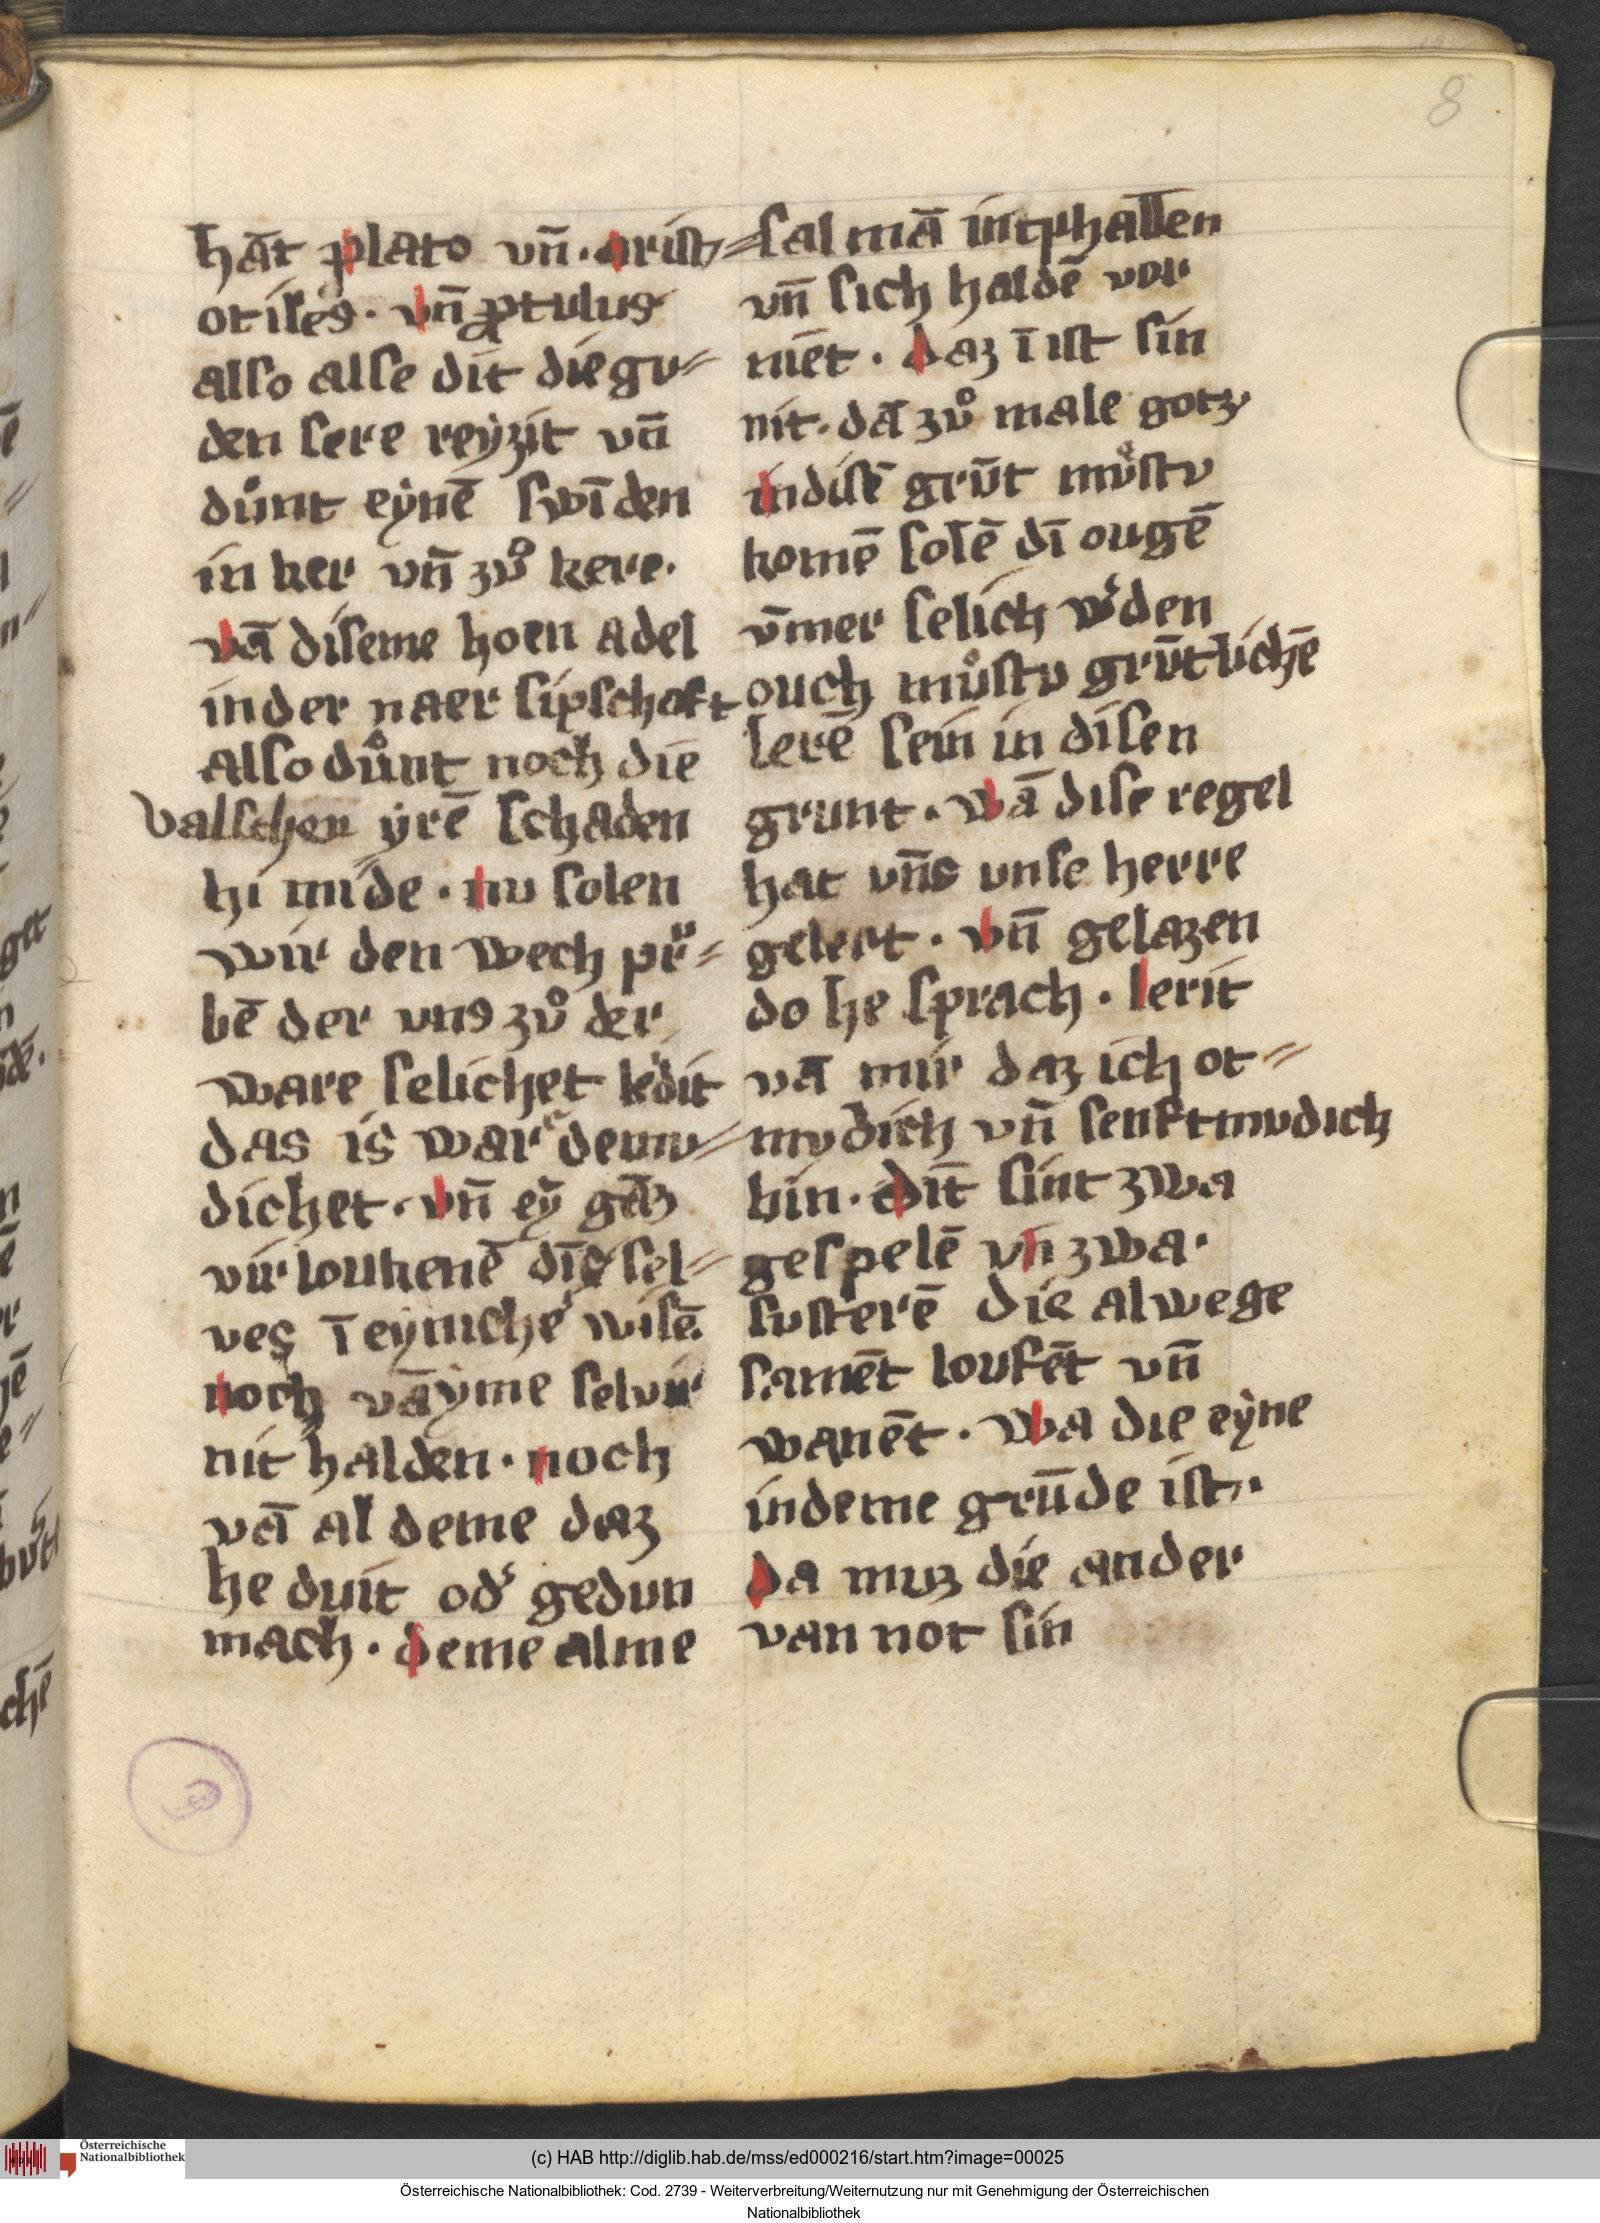 8
hāt plato vn̄ · arist⸗
otiles · vn̄ ꝓtulus
also alse dit die gu⸗
den sere reÿzit vn̄
důnt eÿnē swīden
in ker vn̄ zuͦ kere ·
vā diseme hoen adel
in der naer sipschaft
also důnt noch die
valschen ÿrē schaden
hi mide · nu solen
wir den wech pr⸗
bē der vns zuͦ der
ware selichet
das is war demu⸗
dichet · vn̄ eÿ
vir loukenē dis sel⸗
ves ī eynicher wisē
noch vā ÿme selvir
nit halden · noch
vā al deme daz
he duit od' gedun
mach · deme alme
sal mā intphallen
vn̄ sich haldē vor
niēt · daz ī ist sin
nit · dā zuͦ male gotz
in disē grūt muͦstu
komē solē dī ougē
v̄mer selich w'den
ouch muͦstu grūtlichē
lerē sein in disen
grunt · wā dise regel
hat vn̄s unse herre
gelert · vn̄ gelazen
do he sprach · lerit
vā mir daz ich ot⸗
mvdich vn̄ senftmvdich
bin · dit sint zwa
gespelē vn̄ zwa ·
susterē die alwege
samēt loufēt vn̄
wanēt · wa die eÿne
in deme grūde ist ·
Da muz die ander
van not sin
Österreichische
Nationalbibliothek
(c) HAB http://diglib.hab.de/mss/ed000216/start.htm?image=00025
Österreichische Nationalbibliothek: Cod. 2739 - Weiterverbreitung/Weiternutzung nur mit Genehmigung der Österreichischen
Nationalbibliothek